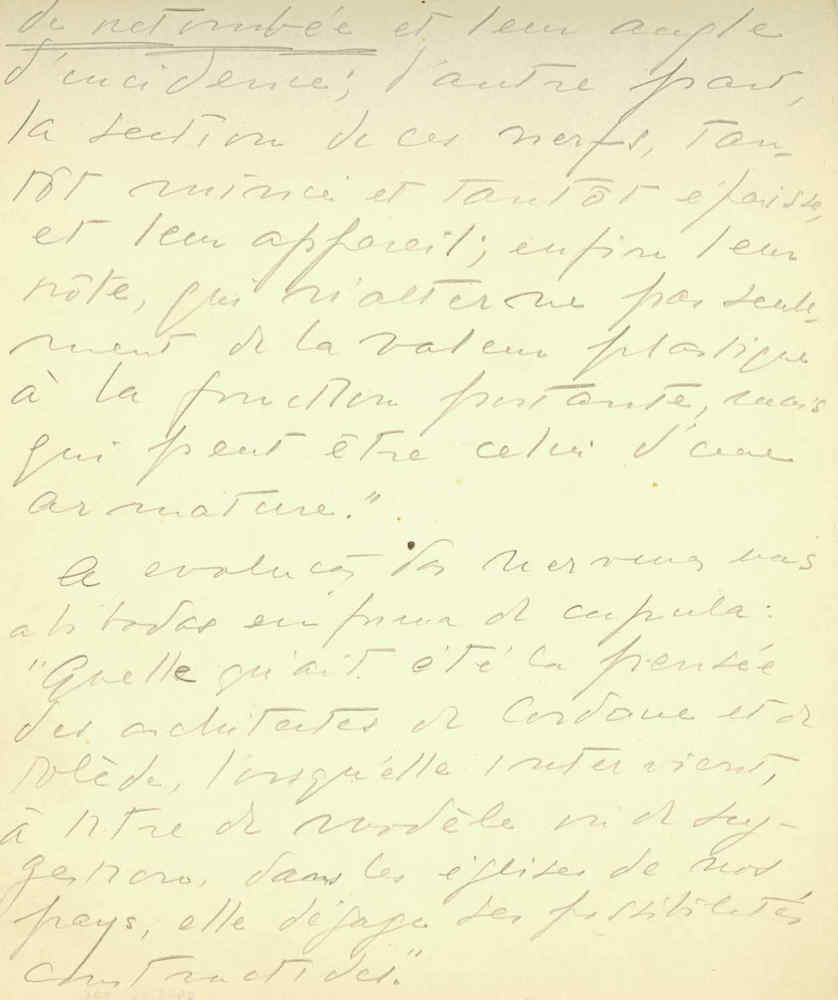 de retombée et leur angle
d'incidence; d'autre part,
la section de ces nerfs, tan-
tôt mince et tantôt épaisse,
et leur appareil; enfin leur
rôte, qui n'alterne pas seule-
ment de la valeur plastique
à la fonction portante, mais
qui peut être celui d'une
armature."
A evolução das nervuras nas
abóbodas em forma de cupula:
"Quelle qu'ait été la pensée
des architectes de Cordoue et de
Tolède, lorsqu'elle intervient,
à titre de modèle ou de sug-
gestion, dans les églises de nos
pays, elle dégage ses possibilités
constructives."